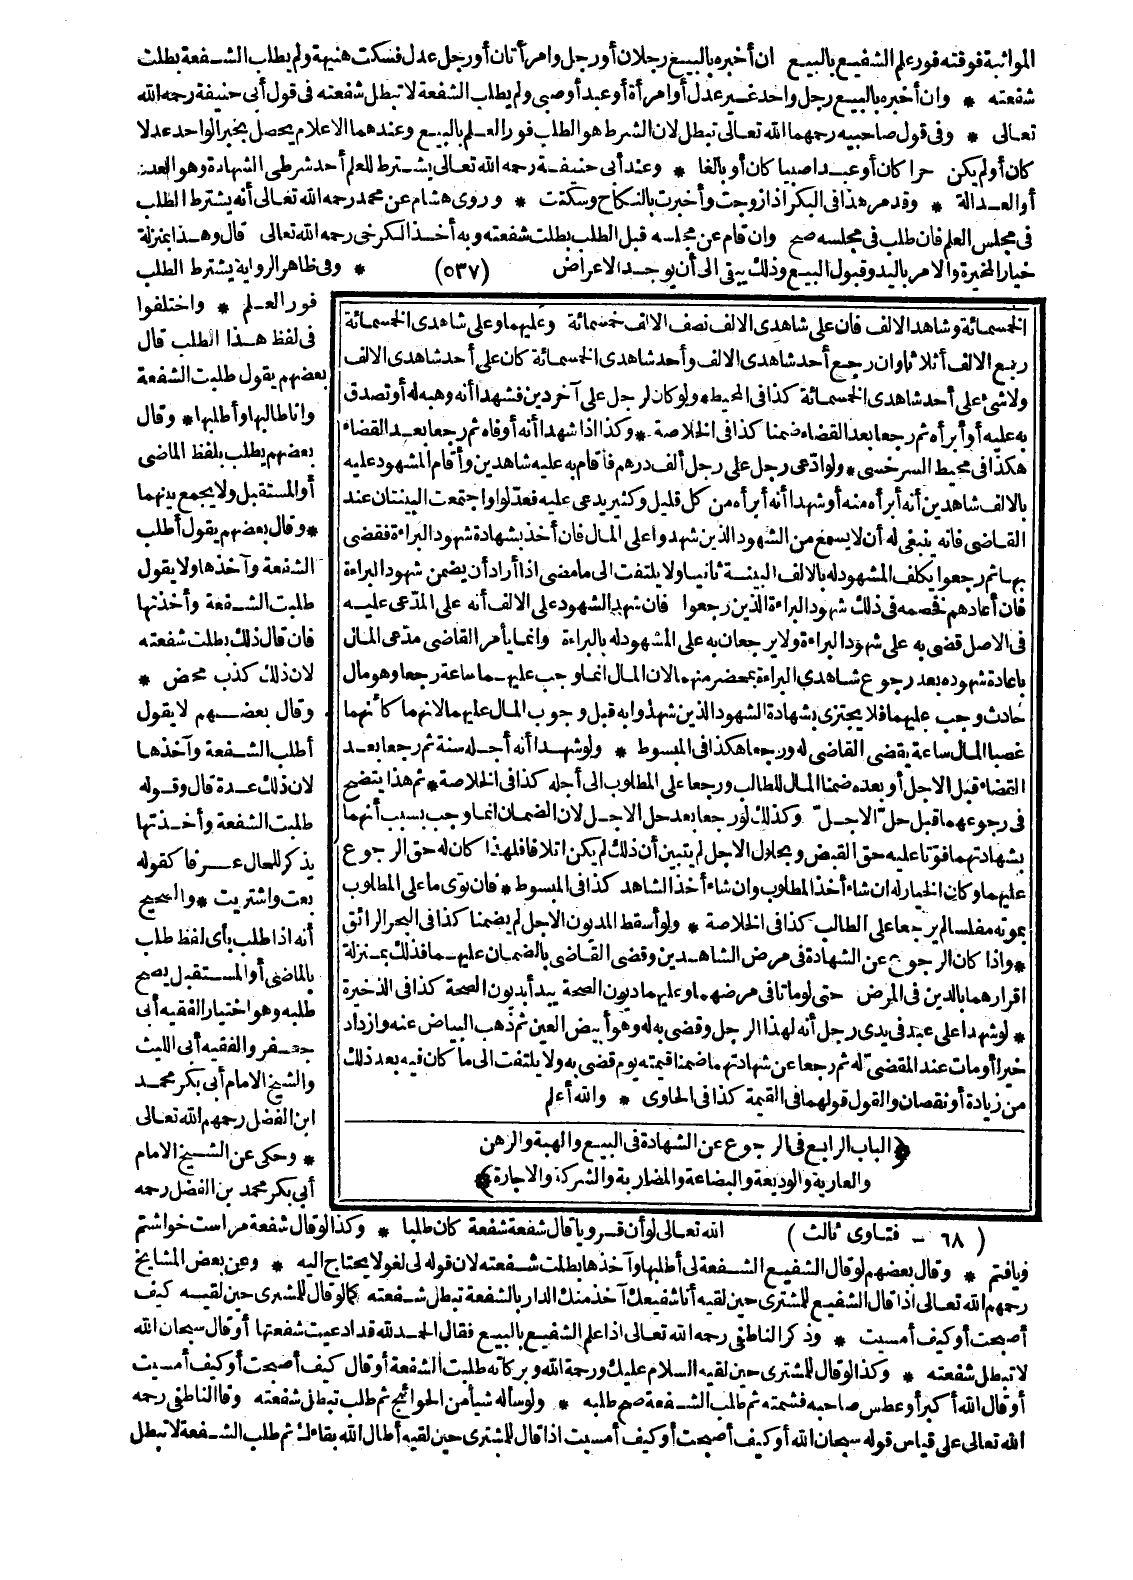 المواثبة فوقته فور علم الشفيع بالبيع ان أخبره بالبيع رجلان أو رجل وامرأتان أو رجل عدل فسكت هنيهة ولم يطلب الشفعة بطلت
شفعته * وان أخبره بالبيع رجل واحد غير عدل أو امرأة أو عبد أو صبي ولم يطلب الشفعة لا تبطل شفعته فى قول أبى حنيفة رحمه الله
تعالى * وفى قول صاحبيه رحمهما الله تعالى تبطل لان الشرط هو الطلب فور العلم بالبيع وعندهما الاعلام يحصل بخبر الواحد عدلا
كان أو لم يكن حرا كان أو عبدا صبيا كان أو بالغا * وعند أبى حنيفة رحمه الله تعالى يشترط للعلم أحد شرطى الشهادة وهو العدد
أو العدالة * وقد مر هذا فى البكر اذا زوجت وأخبرت بالنكاح وسكتت * وروى هشام عن محمد رحمه الله تعالى أنه يشترط الطلب
فى مجلس العلم فان طلب فى مجلسه صح وان قام عن مجلسه قبل الطلب بطلت شفعته وبه أخذ الكرخى رحمه الله تعالى قال وهذا بمنزلة
خيار المخيرة والامر باليد وقبول البيع وذلك يبقى الى أن يوجد الاعراض (٥٣٧) * وفى ظاهر الرواية يشترط الطلب
فور العلم * واختلفوا
فى لفظ هذا الطلب قال
بعضهم يقول طلبت الشفعة
وانا طالبها وأطلبها * وقال
بعضهم يطلب بلفظ الماضى
أو المستقبل ولا يجمع بينهما
* وقال بعضهم يقول أطلب
الشفعة وآخذها ولا يقول
طلبت الشفعة وأخذتها
فان قال ذلك بطلت شفعته
لان ذلك كذب محض *
وقال بعضهم لا يقول
أطلب الشفعة وآخذها
لان ذلك عدة قال وقوله
طلبت الشفعة وأخذتها
يذكر للحال عرفا كقوله
بعت واشتريت * والصحيح
أنه اذا طلب بأى لفظ طلب
بالماضى أو المستقبل يصح
طلبه وهو اختيار الفقيه أبى
جعفر والفقيه أبى الليث
والشيخ الامام أبى بكر محمد
ابن الفضل رحمهم الله تعالى
* وحكى عن الشيخ الامام
أبى بكر محمد بن الفضل رحمه
الخمسمائة وشاهد الالف فان على شاهدى الالف نصف الالف خمسمائة وعليهما وعلى شاهدى الخمسمائة
ربع الالف أثلاثا وان رجع أحد شاهدى الالف وأحد شاهدى الخمسمائة كان على أحد شاهدى الالف
ولا شئ على أحد شاهدى الخمسمائة كذا فى المحيط * ولو كان لرجل على آخر دين فشهدا أنه وهبه له أو تصدق
به عليه أو أبرأه ثم رجعا بعد القضاء ضمنا كذا فى الخلاصة * وكذا اذا شهدا أنه أوفاه ثم رجعا بعد القضاء
هكذا فى محيط السرخسى * ولو ادعى رجل على رجل ألف درهم فأقام به عليه شاهدين وأقام المشهود عليه
بالالف شاهدين أنه أبرأه منه أو شهدا أنه أبرأه من كل قليل وكثير يدعى عليه فعدلوا واجتمعت البينتان عند
القاضى فانه ينبغى له أن لا يسمع من الشهود الذين شهدوا على المال فان أخذ بشهادة شهود البراءة فقضى
بها ثم رجعوا يكلف المشهود له بالالف البينة ثانيا ولا يلتفت الى ما مضى اذا أراد أن يضمن شهود البراءة
فان أعادهم فخصمه فى ذلك شهود البراءة الذين رجعوا فان شهد الشهود على الالف أنه على المدعى عليه
فى الاصل قضى به على شهود البراءة ولا يرجعان به على المشهود له بالبراءة وانما يأمر القاضى مدعى المال
باعادة شهوده بعد رجوع شاهدى البراءة بمحضر منهما لان المال انما وجب عليهما ساعة رجعا وهو مال
حادث وجب عليهما فلا يجتزى بشهادة الشهود الذين شهدوا به قبل وجوب المال عليهما لانهما كأنهما
غصبا المال ساعة يقضى القاضى له ورجعا هكذا فى المبسوط * ولو شهدا أنه أجله سنة ثم رجعا بعد
القضاء قبل الاجل أو بعده ضمنا المال للطالب ورجعا على المطلوب الى أجله كذا فى الخلاصة * ثم هذا يتضح
فى رجوعهما قبل حل الاجل وكذلك لو رجعا بعد حل الاجل لان الضمان انما وجب بسبب أنهما
بشهادتهما فوتا عليه حق القبض وبحلول الاجل لم يتبين أن ذلك لم يكن اتلافا فلهذا كان له حق الرجوع
عليهما وكان الخيار له ان شاء أخذ المطلوب وان شاء أخذ الشاهد كذا فى المبسوط * فان توى ما على المطلوب
بموته مفلسا لم يرجعا على الطالب كذا فى الخلاصة * ولو أسقط المديون الاجل لم يضمنا كذا فى البحر الرائق
* واذا كان الرجوع عن الشهادة فى مرض الشاهدين وقضى القاضى بالضمان عليهما فذلك بمنزلة
اقرارهما بالدين فى المرض حتى لو ماتا فى مرضهما وعليهما ديون الصحة يبدأ بديون الصحة كذا فى الذخيرة
* لو شهدا على عبد فى يدى رجل أنه لهذا الرجل وقضى به له وهو أبيض العين ثم ذهب البياض عنه وازداد
خيرا أو مات عند المقضى له ثم رجعا عن شهادتهما ضمنا قيمته يوم قضى به ولا يلتفت الى ما كان فيه بعد ذلك
من زيادة أو نقصان والقول قولهما فى القيمة كذا فى الحاوى * والله أعلم
﴿الباب الرابع فى الرجوع عن الشهادة فى البيع والهبة والرهن
والعارية والوديعة والبضاعة والمضاربة والشركة والاجارة﴾
(٦٨ - فتاوى ثالث) الله تعالى لو أن قرويا قال شفعة شفعة كان طلبا * وكذا لو قال شفعة مراست خواشتم
ويافتم * وقال بعضهم لو قال الشفيع الشفعة لى أطلبها وآخذها بطلت شفعته لان قوله لى لغو لا يحتاج اليه * وعن بعض المشايخ
رحمهم الله تعالى اذا قال الشفيع للمشترى حين لقيه أنا شفيعك آخذ منك الدار بالشفعة تبطل شفعته كما لو قال للمشترى حين لقيه كيف
أصبحت أو كيف أمسيت * وذكر الناطفى رحمه الله تعالى اذا علم الشفيع بالبيع فقال الحمد لله قد ادعيت شفعتها أو قال سبحان الله
لا تبطل شفعته * وكذا لو قال للمشترى حين لقيه السلام عليك ورحمة الله وبركاته طلبت الشفعة أو قال كيف أصبحت أو كيف أمسيت
أو قال الله أكبر أو عطس صاحبه فشمته ثم طلب الشفعة صح طلبه * ولو سأله شيأ من الحوائج ثم طلب تبطل شفعته وقا الناطفى رحمه
الله تعالى على قياس قوله سبحان الله أو كيف أصبحت أو كيف أمسيت اذا قال للمشترى حين لقيه أطال الله بقاءك ثم طلب الشفعة لا تبطل